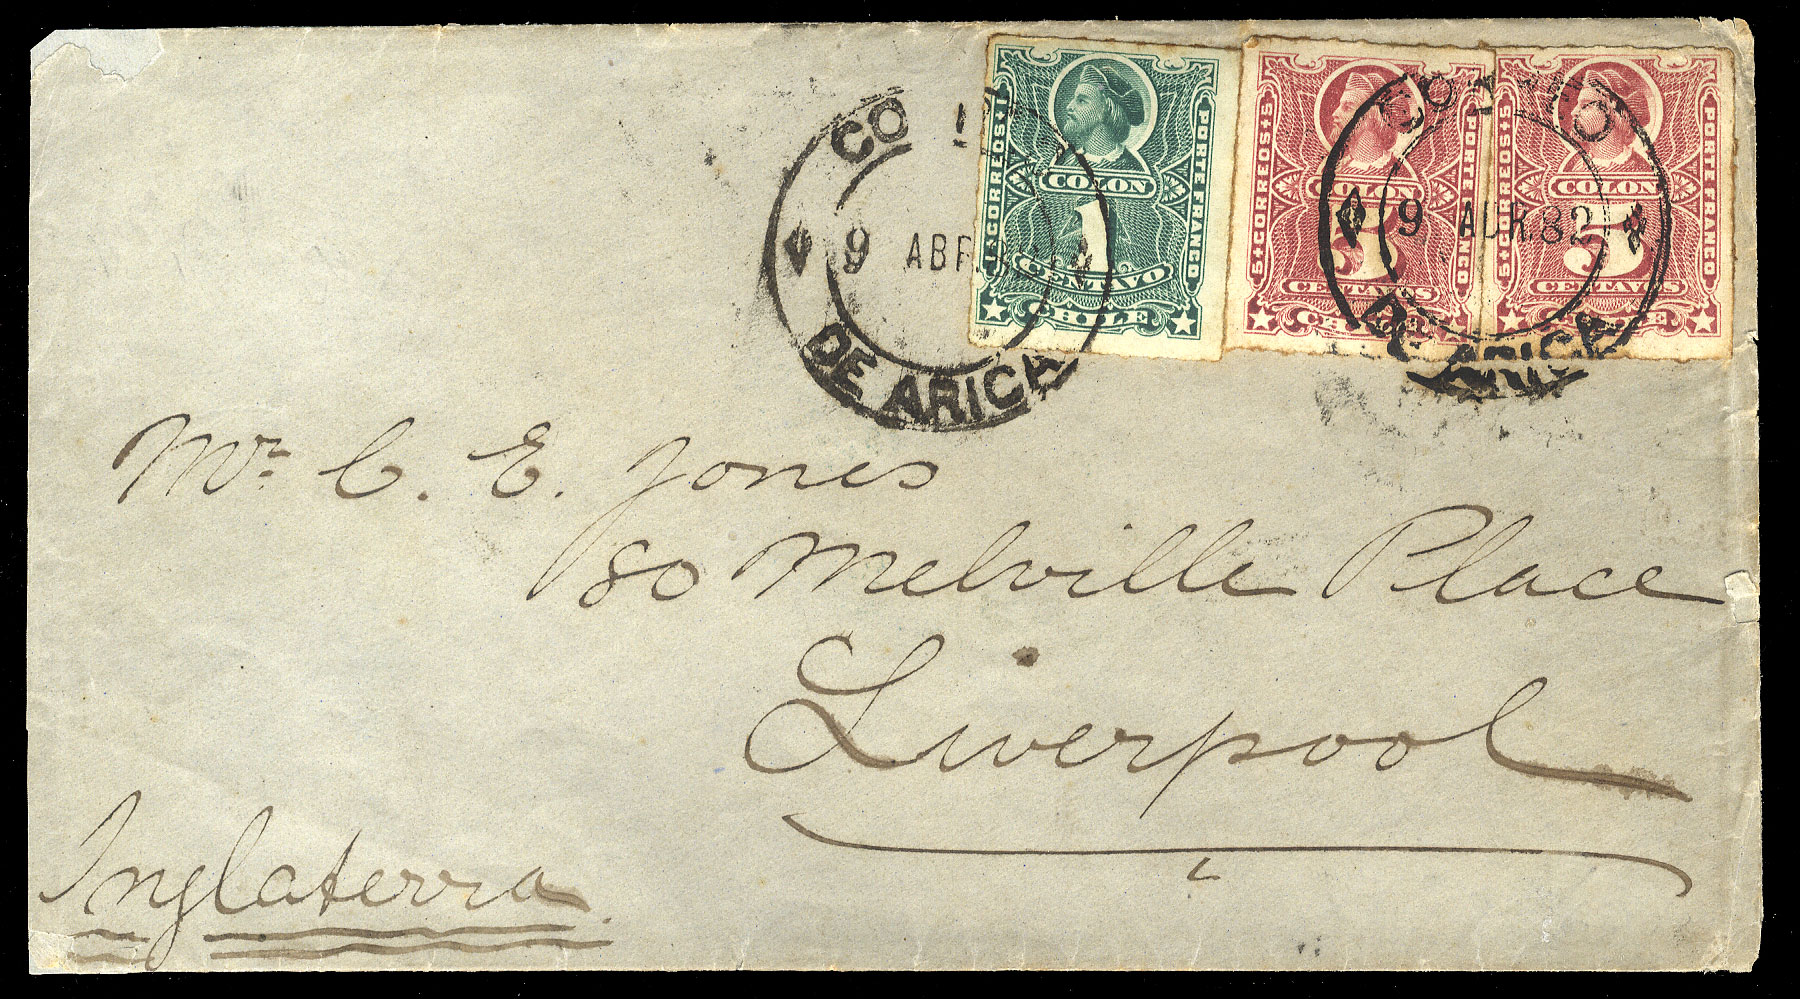 1+CORREOS+1
PORTE FRANCO
COLON
1
CENTAVO
CHILE
5+CORREOS+5
PORTE FRANCO
COLON
5
CENTAVOS
CHILE
5+CORREOS+5
PORTE FRANCO
COLON
5
CENTAVOS
CHILE
9 ABR.
DE ARICA
CORREO
9 ABR. 82
DE ARICA
Mr. C. E. Jones
80 Melville Place
Liverpool
Inglaterra.